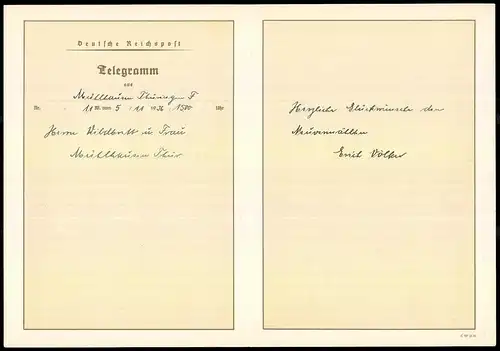 Deutsche Reichspost
Telegramm
aus
Mühlhausen Thüringen F
Nr. 11 W. vom 5 / 11 1936 1500 Uhr
Herrn Wildbrett u Frau
Mühlhausen Thür
Herzliche Glückwünsche den
Neuvermählten
Erich Völker